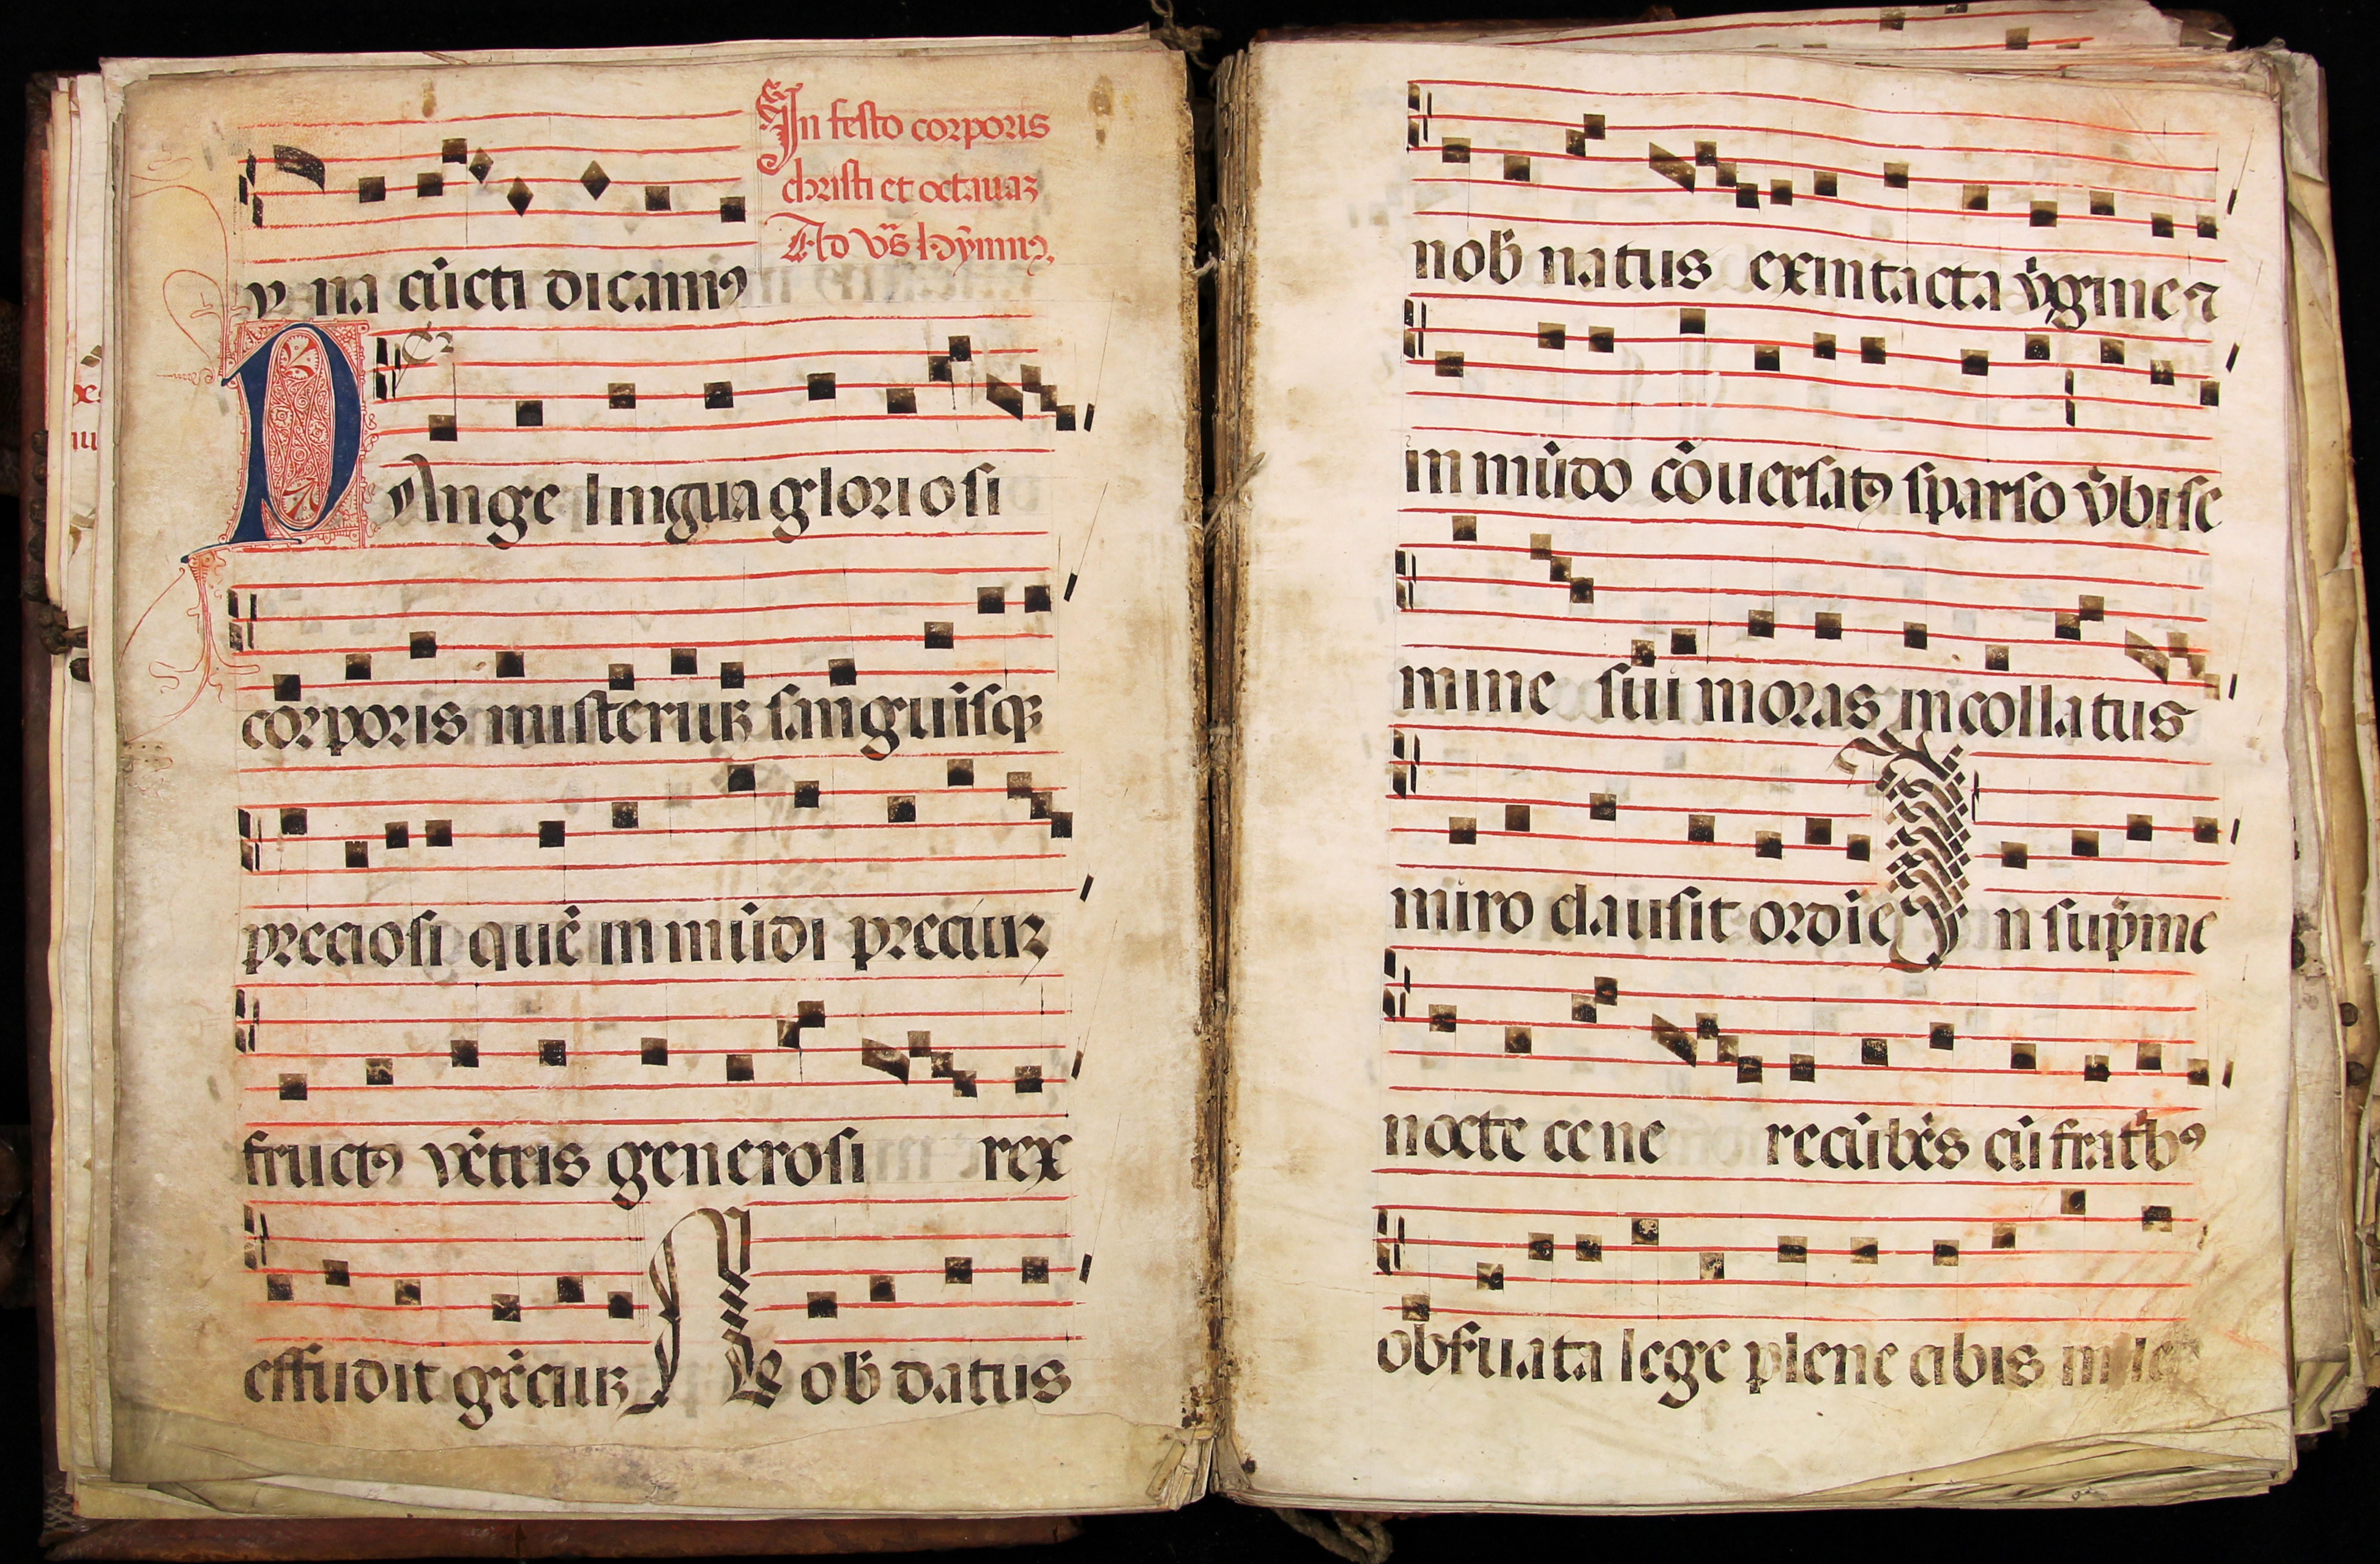 In festo corporis
christi et octauaꝫ
Ad vr̃s hỹmnꝰ.
na cũcti dicamꝰ
PAnge lingua gloriosi
corporis misteriuꝫ sanguisqꝫ
preciosi quẽ in mũdi preciuꝫ
fructꝰ vẽtris generosi rex
effudit gẽciuꝫ Nob̃ datus
nob̃ natus ex intacta v̾gine ⁊
in mũdo cõuersatꝰ sparso v̾bi se
mine sui moras incollatus
miro clausit ordĩe In sup̃me
nocte cene recũbẽs cũ fratbꝰ
obẜuata lege plene cibis in